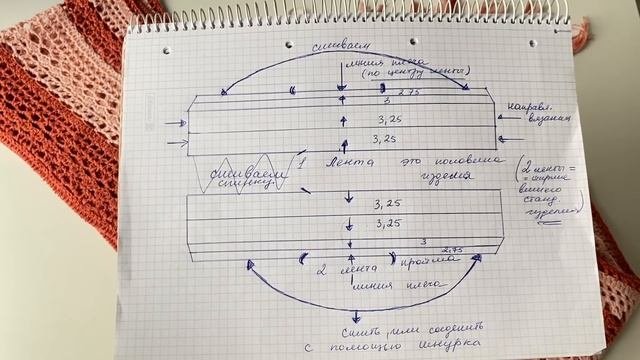 сшиваем
линия плеча
(по центру ленты)
2.75
3
3,25
3,25
направл.
вязания
1 Лента это половина
изделия
сшиваем
спинку.
(2 ленты =
= ширине
вашего
станд.
изделия)
3,25
3,25
3
2.75
2 лента пройма
линия плеча
сшить, или соединить
с помощью шнурка